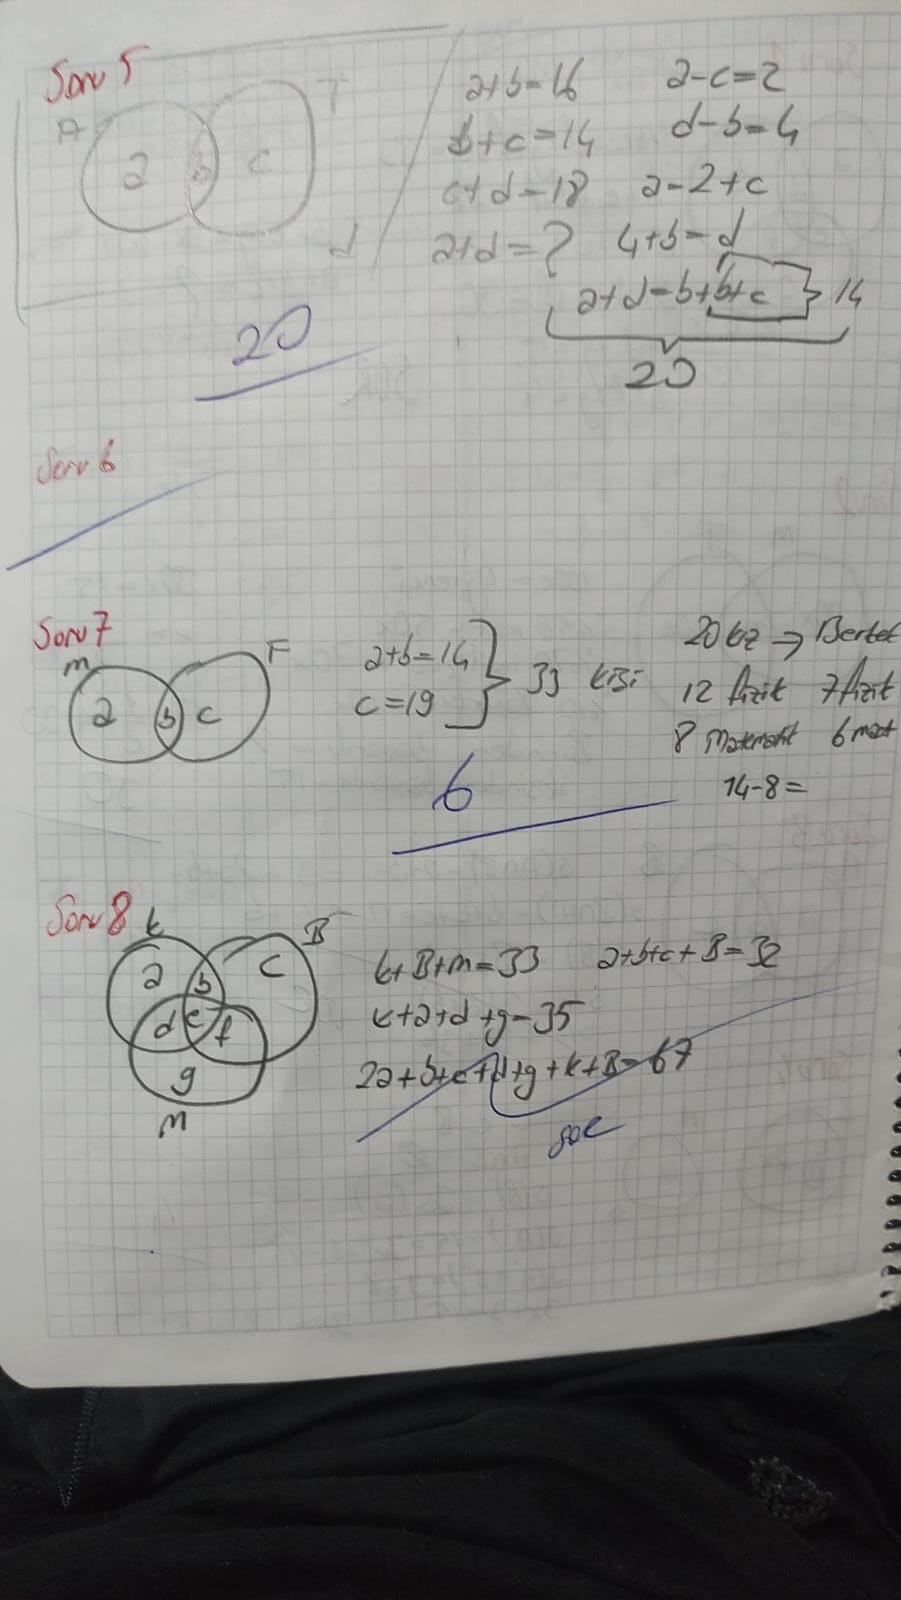 Soru 5
A T
a b c
d
a+b=16
b+c=14
c+d=18
a+d=?
a-c=2
d-b=4
a=2+c
4+b=d
a+d=b+b+c } 14
20
20
Soru 6
Soru 7
M F
a b c
a+b=14
c=19
33 kişi
20 kız →
12 fizik 7 fizik
8 Matematik 6 mat
14-8=
6
Soru 8
K B
a b c
d e f
g
M
K+B+M=33 a+b+c+B=32
K+a+d+g=35
2a+b+c+d+g+K+B=67